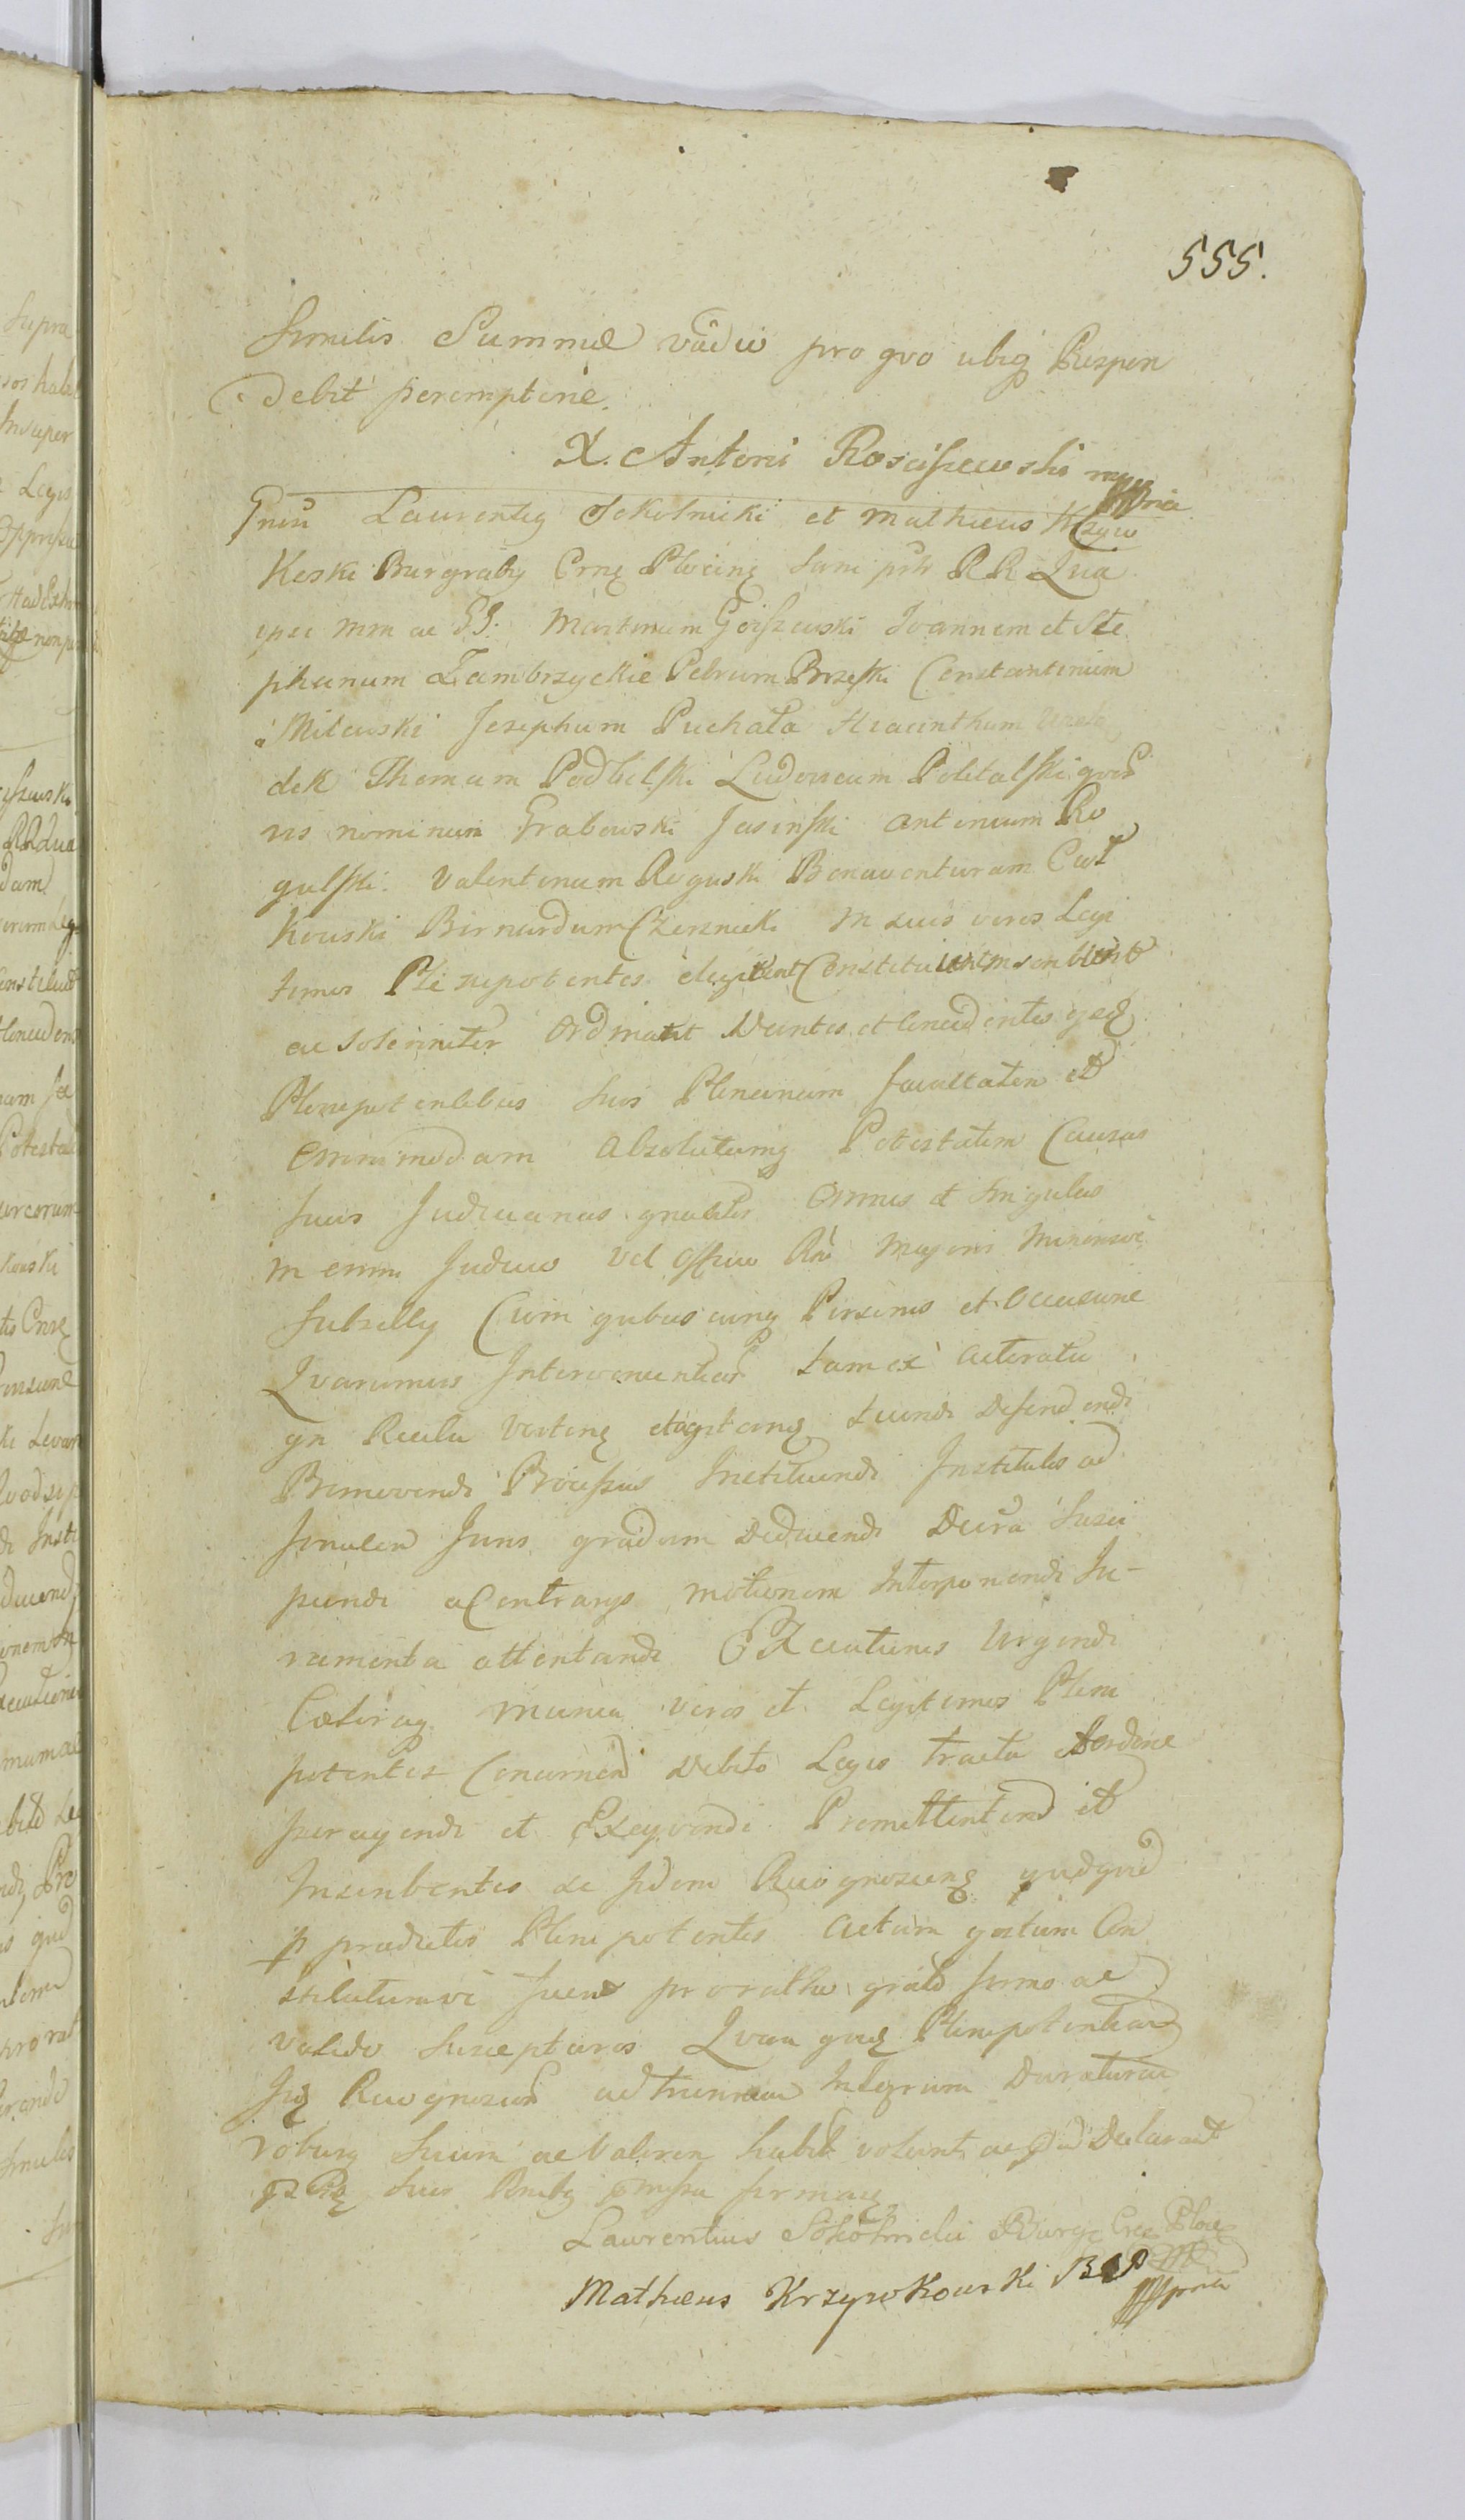 555.
similis Summæ vadio pro qvo ubiq Respon
debit peremptorie.
X. Antoni Rosciszewski mppria
Gnsi Laurentiq Sokolnicki et Mathieus Krzyw
koski Burgrabij Crnę Plocinę Suni pstr RR Qua
ipsi mm ac GG: Martinum Goiszewski Joannem et Ste
phanum Zambrzyckie Petrum Brzeski Constantinum
Milewski Josephum Puchała Hiacinthum
dek Thomam Podbielski Ludovicum Politalski qvor
vis nominum Grabowski Jasinski Antonium Ro
gulski. Valentinum Roguski Bonaventuram Cwl
kowski Bernardum Czerznicki in suis veros Legi
timos Pleni nepotentes elegerunt Constituerunt
ac Solenniter Ordinant Dantes et Concedentes ysdę
Plenipotentibus suis Plenariam facultatem et
omnimodam Absolutamq Potestatem Causas
suas Judicianas gnaliter omnes et singulas
in omni Judicio vel officio Rni Majoris Minorisve
Subselly Cum qvibuscunq Personis et Occasione
Qvarumvis Intervenientiar tam ex Actoratu
qn Reatu verten et agitan tuendi Defendendi
Promovendi Processus Instituendi Institutos ad
finalem Juris gradum Deducendi Decra Susci
piendi a Contrarys motionem Interponendi Ju-
ramenta attentandi Executiones Urgendi
Coeteraq munia veros et Legitimos Pleni
potentes Concernen Debito Legis tractu et ordine
peragendi et Exeqvendi Promitten et
Inscribentes se Jidem Recognoscenę qvidqvid
p praedictos Plenipotentes Actum gestum Con
stitutumve fuerit pro rathu grato firmo ac
valido Suscepturos Qvam qvidę Plenipotentiam
Jiq Recognoscen ad trienium Integrum Duraturam
roburq suum ac Valorem habere volunt ac Declarant
suis Rnibq pmissa firmaę
Laurentius Sokolnicki Burg: Crę Plocę
mp
Mathæus Krzywkowski BGP
mppria